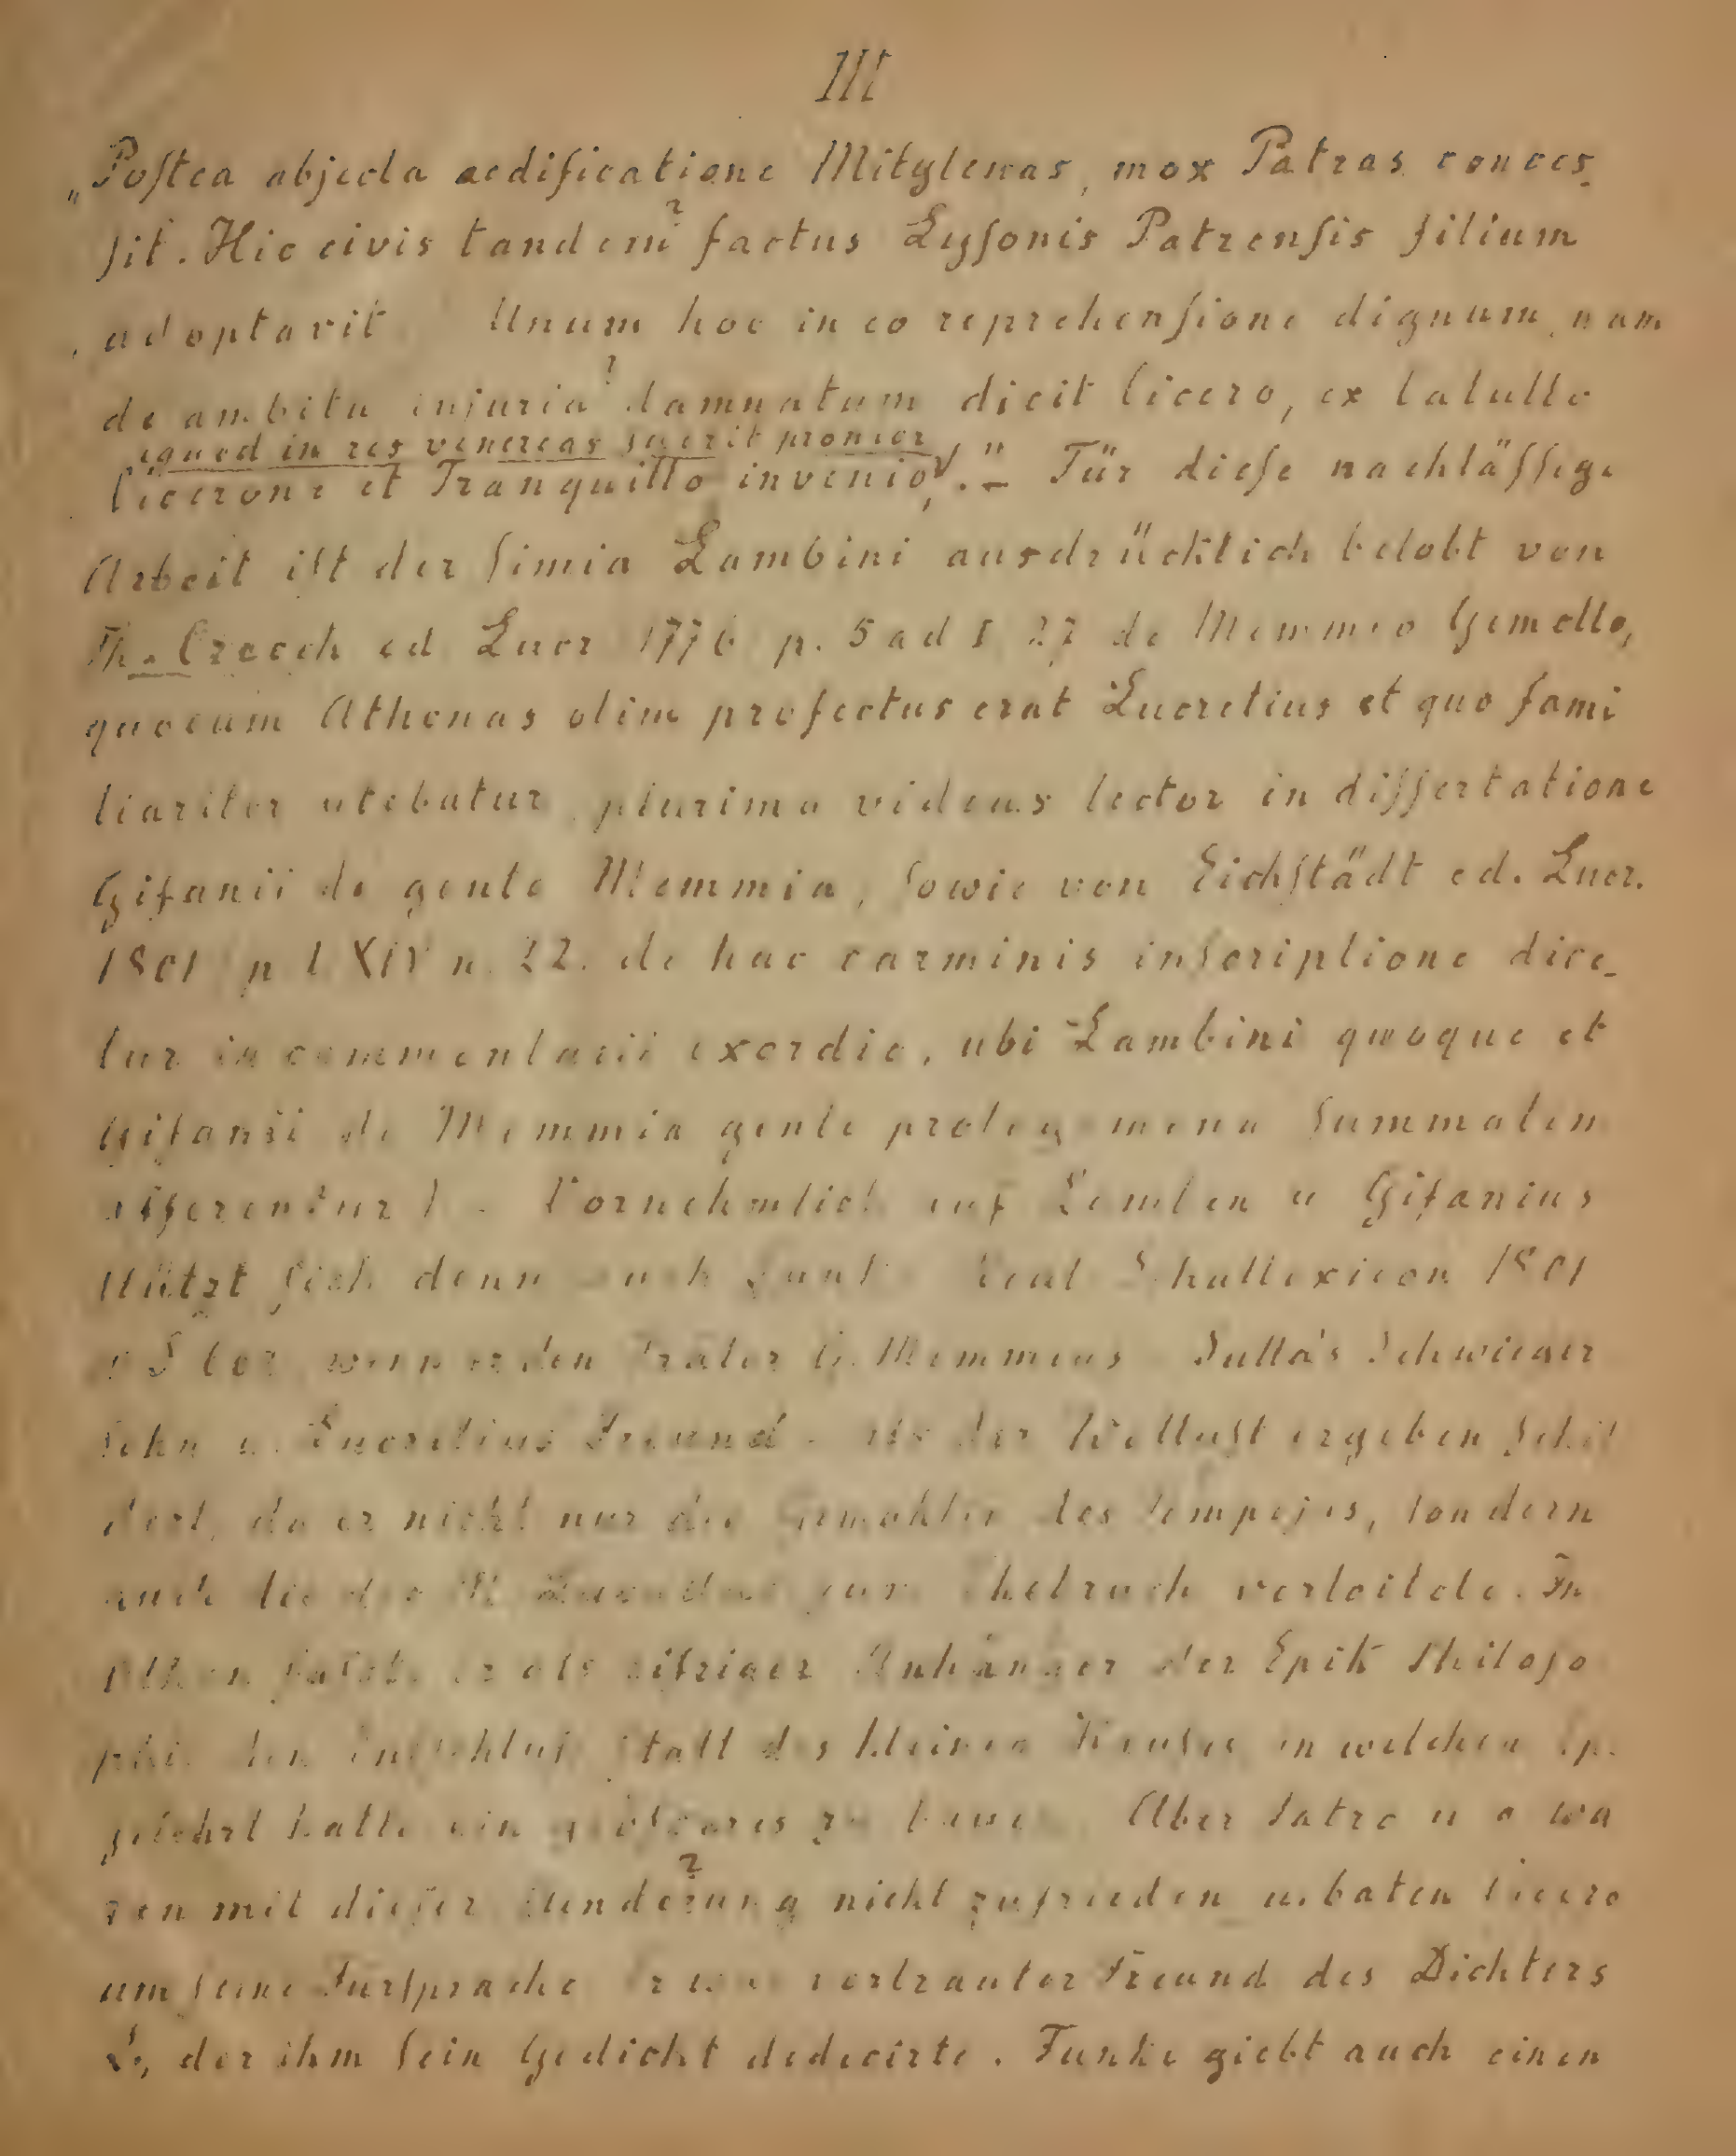 III
„Poſtea abjecta aedificatione Mitylenas, mox Patras conces-
ſit. Hic civis tandem? factus Lyſonis Patrenſis filium
adoptavit Unum hoc in eo reprehenſione dignum, nam
de ambitu injuria? damnatum dicit Cicero, ex Catullo
quod in res venereas fuerit pronior
Cicerone et Tranquillo invenio,." – Für dieſe nachläſſige
Arbeit iſt der ſimia Lambini ausdrücklich belobt von
Th. Creech ed Lucr 1776 p. 5 ad I 27 de Memmio Gemello,
quocum Athenas olim profectus erat Lucretius et quo fami
liariter utebatur, plurima videas lector in diſſertatione
Gifanii de gente Memmia, ſowie von Eichſtädt ed. Lucr.
1801 p LXIV n. 22. de hac carminis inſcriptione dice-
tur in commentarii exordio, ubi Lambini quoque et
Gifanii de Memmia gente prolegomena ſummatim
afferentur). Vornehmlich auf Gifanius
ſtützt ſich denn Schullexicon 1801
wenn er den Memmius Sulla's Schwieger
ſohn u. Lucretius Freund als der Wolluſt ergeben ſchil
dert, da er nicht nur die Gemahlin des Pompejus, ſondern
auch die des zum Ehebruch verleitete. In
Athen faſste er als eifriger Anhänger der Epik Philoſo
phie den Entſchluſs ſtatt des kleinen Hauſes in welchem Ep.
gelehrt hatte ein gröſseres zu bauen Aber Patro u a wa
ren mit dieſer Aenderung? nicht zufrieden u. baten Cicero
um ſeine Fürſprache Er war vertrauter Freund des Dichters
L., der ihm ſein Gedicht dedicirte. Funke giebt auch einen